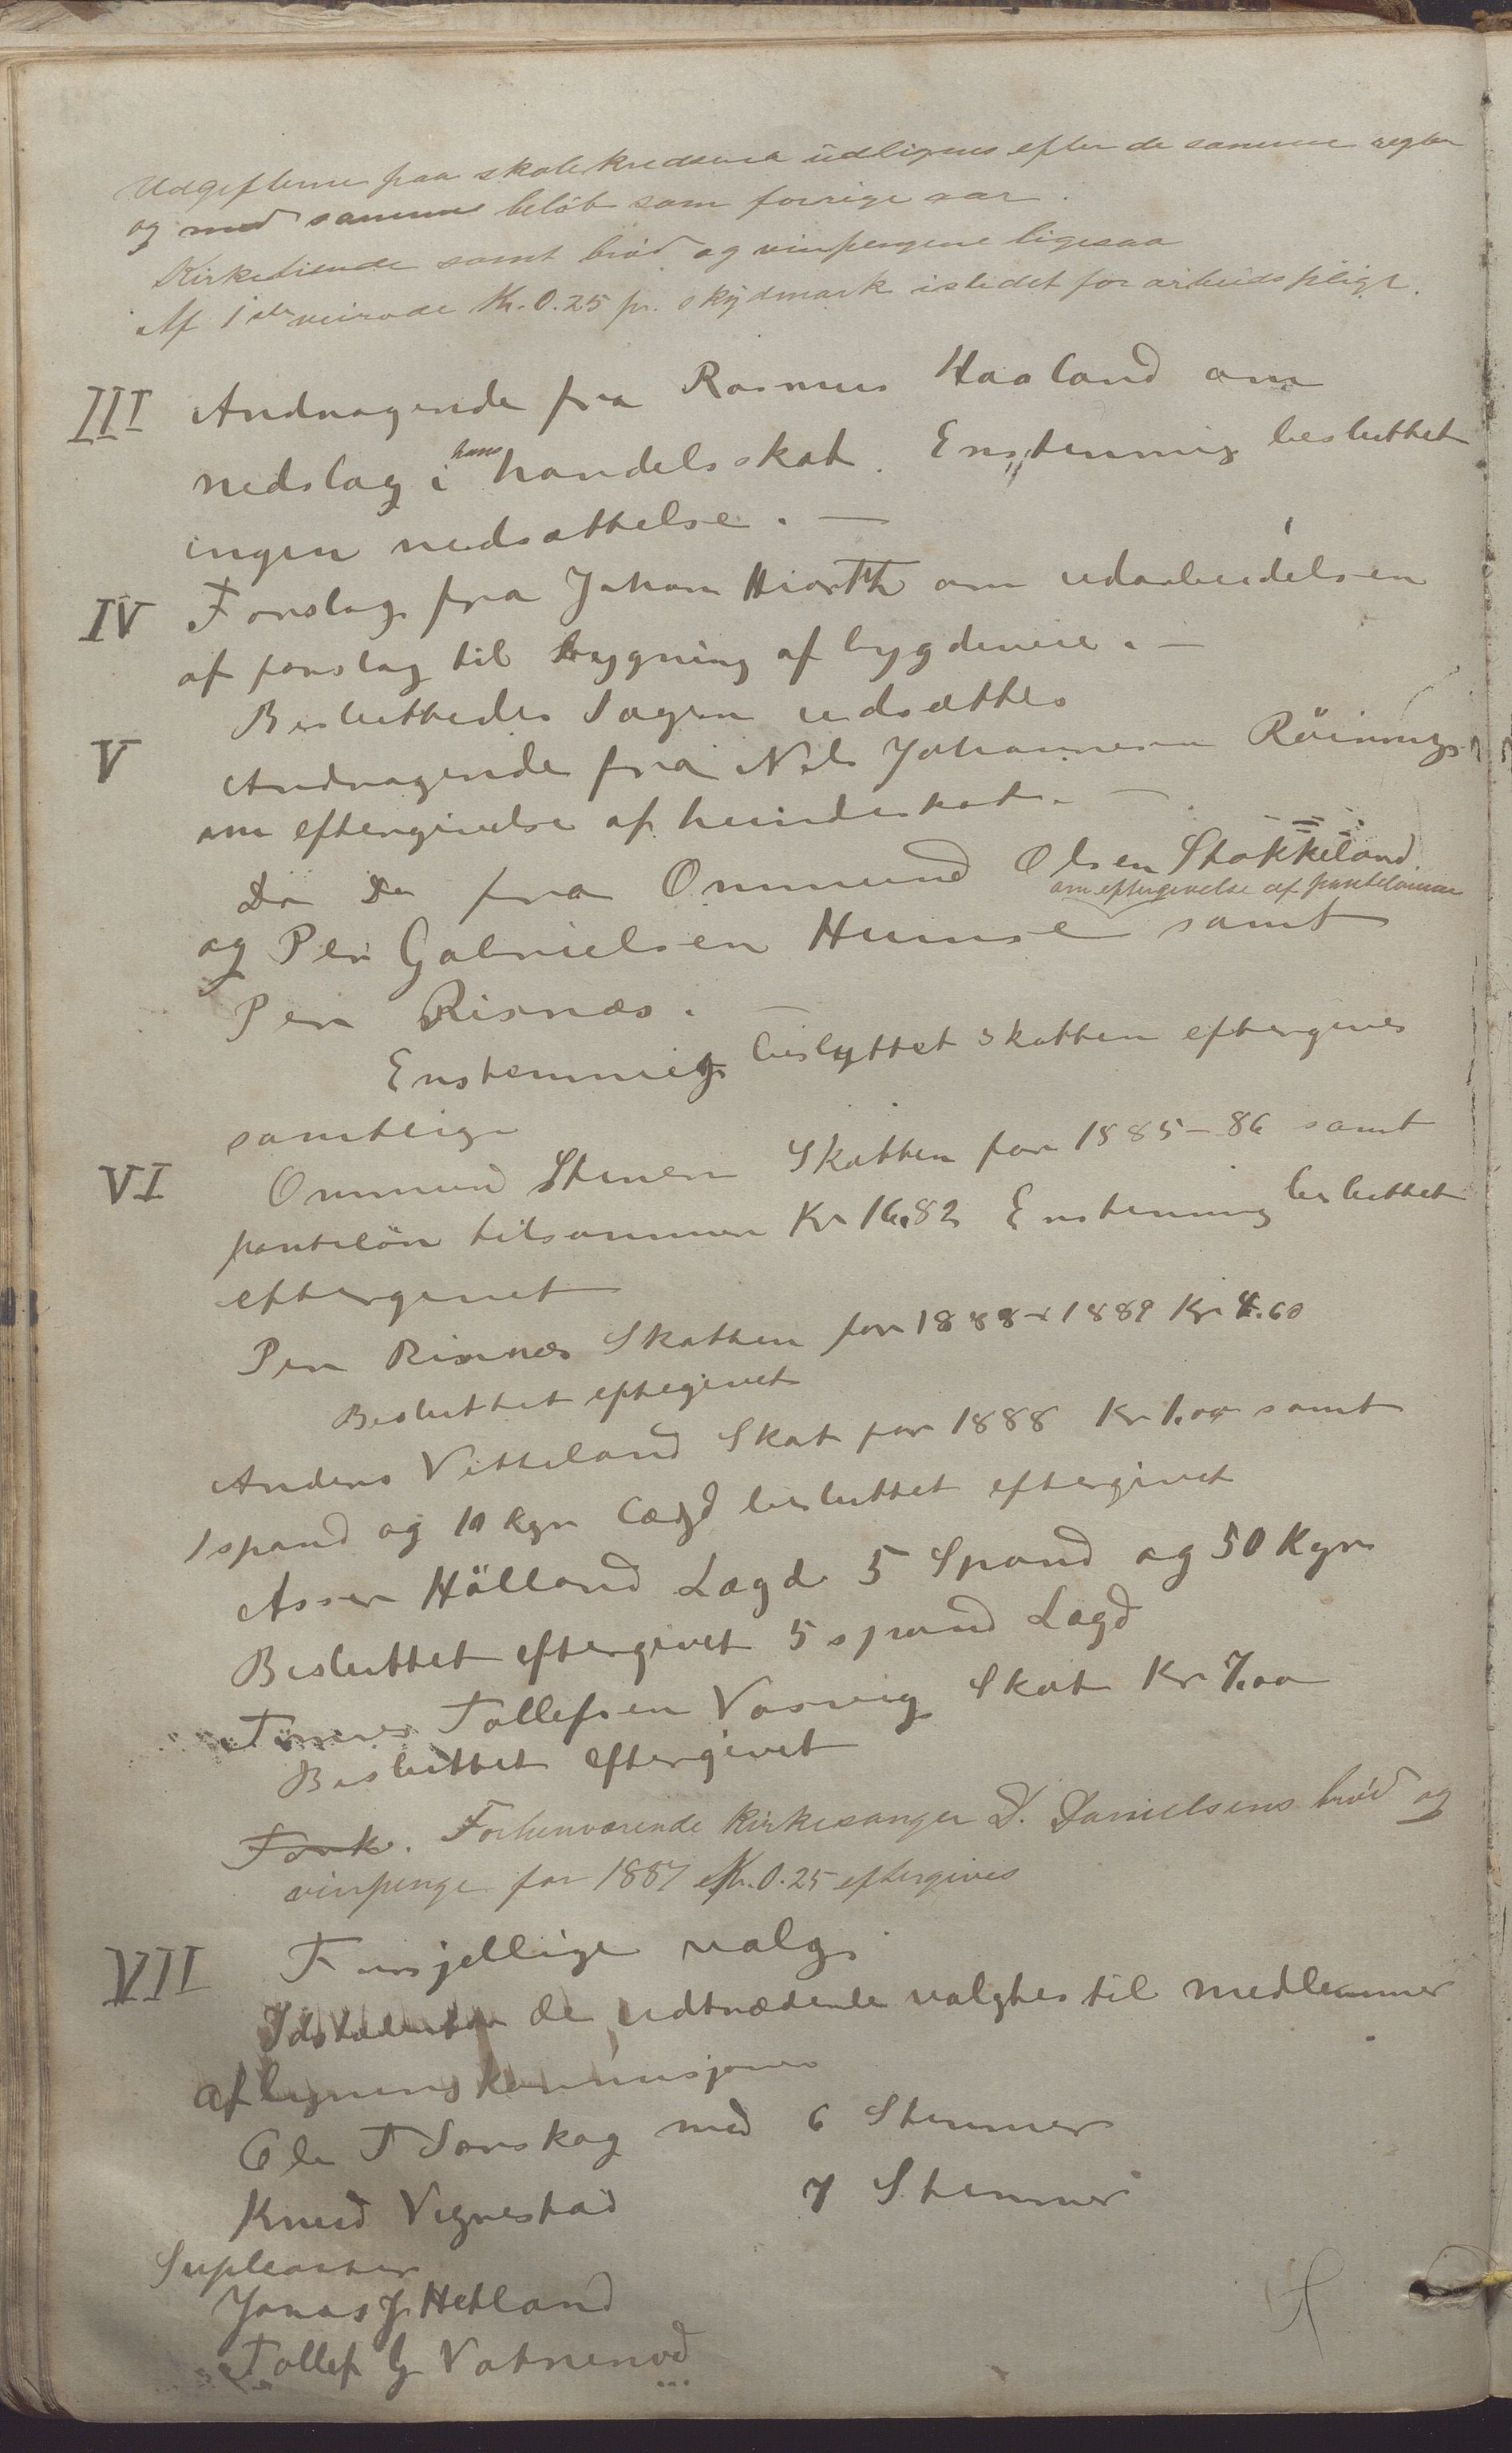 Udgifterne paa skolekredsene udlignes efter de samme regler
og med samme beløb som forrige aar.
Kirketiende samt brød og vinpengene ligesaa
Af 1ste veirode Kr. 0.25 pr. skydmark istedet for arbeidspligt.
III Andragende fra Rasmus Haaland om
nedslag i hans handelsskat. Enstemmig besluttet
ingen nedsættelse. —
IV Forslag fra Johan Hiorth om udarbeidelsen
af forslag til bygning af bygdeveie. —
Besluttedes Sagen udsættes
V Andragende fra Nils Johannesen
om eftergivelse af hundeskat. —
Do Do fra Ommund Olsen Stokkeland
om eftergivelse af pantelønnen
og Per Gabrielsen Humse samt
Per Risnæs. —
Enstemmigt beslyttet skatten eftergives
samtlige
VI Ommund Stenen Skatten for 1885-86 samt
panteløn tilsammen Kr 16.82 Enstemmig besluttet
eftergivet
Per Risnæs Skatten for 1888 & 1889 Kr 4.60
Besluttet eftegivet
Anders Vetteland Skat for 1888 Kr 1.00 samt
1 spand og 10 Kgr Lægd besluttet eftergivet
Asser Hölland Lægd 5 Spand og 50 Kgr
Besluttet eftergivet 5 spand Lægd
Tollefsen Vasvig Skat Kr 7.00
Besluttet eftergivet
Fork. Forhenværende Kirkesanger D. Danielsens brød og
vinpenge for 1887 Kr. 0.25 eftergives
VII Forsjellige valg.
Istedenfor de udtrædende valgtes til medlemmer
af ligningskommisjonen
Ole T Sorskog med 6 Stemmer
Knud Vignestad 7 Stemmer
Supleanter
Jonas J. Hetland
Tollef G. Vatnemod